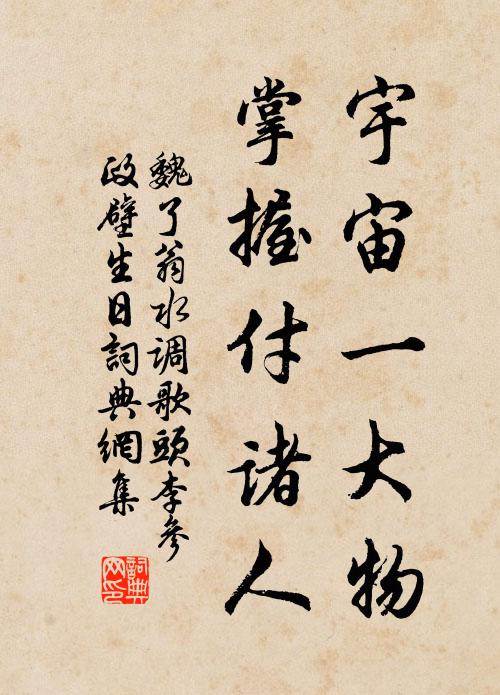 宇宙一大物
掌握付諸人
魏了翁水调歌頭李參
政壁生日詞典網集
詞典网印